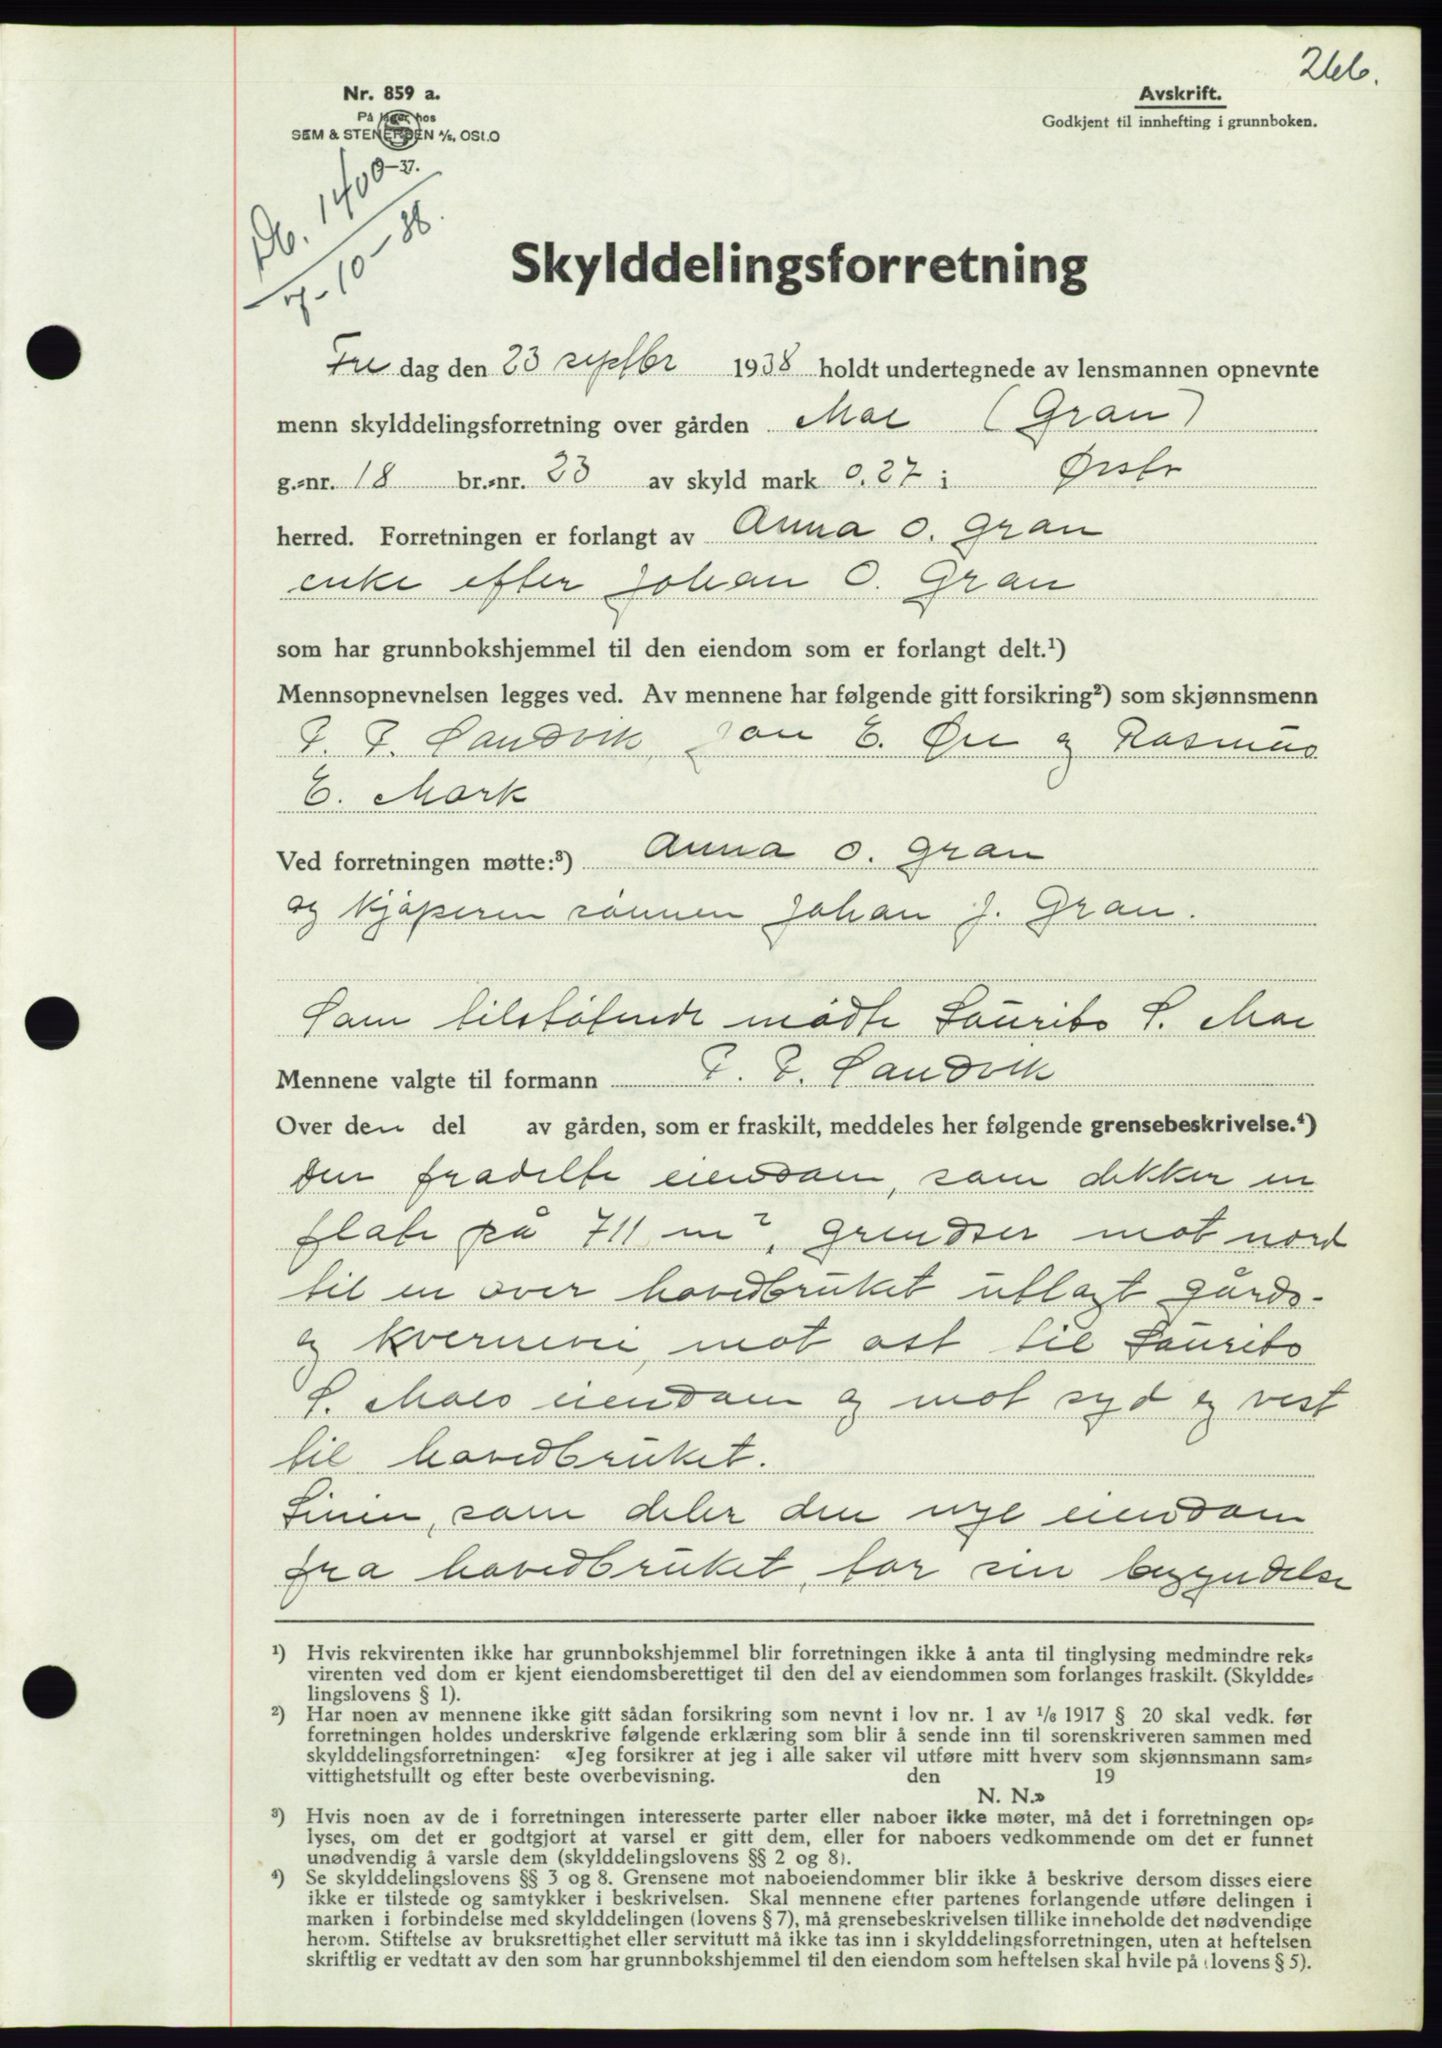 266.
Nr. 859 a.
På lager hos
SEM & STENERSEN A/S, OSLO
–37.
Avskrift.
Godkjent til innhefting i grunnboken.
Db. 1400
7-10-38.
Skylddelingsforretning
Fredag den 23 septbr 1938 holdt undertegnede av lensmannen opnevnte
menn skylddelingsforretning over gården Moe (Gran)
g.-nr. 18 br.-nr. 23 av skyld mark 0.27 i Ørsta
herred. Forretningen er forlangt av Anna O. Gran
enke efter Johan O. Gran
som har grunnbokshjemmel til den eiendom som er forlangt delt.¹)
Mennsopnevnelsen legges ved. Av mennene har følgende gitt forsikring²) som skjønnsmenn
P. P. Sandvik, Jon E. Øie og Rasmus
E. Mork
Ved forretningen møtte:³) Anna O. Gran
og kjøperen sønnen Johan J. Gran.
Som tilstøtende mødte Laurits S. Moe
Mennene valgte til formann P. P. Sandvik
Over den del av gården, som er fraskilt, meddeles her følgende grensebeskrivelse.⁴)
Den fradelte eiendom, som dekker en
flate på 711 m², grendser mot nord
til en over hovedbruket utlagt gårds-
og kvernevei, mot ost til Laurits
S. Moes eiendom og mot syd og vest
til hovedbruket.
Linien, som deler den nye eiendom
fra hovedbruket, tar sin begyndelse
¹) Hvis rekvirenten ikke har grunnbokshjemmel blir forretningen ikke å anta til tinglysing medmindre rek-
virenten ved dom er kjent eiendomsberettiget til den del av eiendommen som forlanges fraskilt. (Skyldde-
lingslovens § 1).
²) Har noen av mennene ikke gitt sådan forsikring som nevnt i lov nr. 1 av ¹/₆ 1917 § 20 skal vedk. før
forretningen holdes underskrive følgende erklæring som blir å sende inn til sorenskriveren sammen med
skylddelingsforretningen: «Jeg forsikrer at jeg i alle saker vil utføre mitt hverv som skjønnsmann sam-
vittighetsfullt og efter beste overbevisning. den 19
N. N.»
³) Hvis noen av de i forretningen interesserte parter eller naboer ikke møter, må det i forretningen op-
lyses, om det er godtgjort at varsel er gitt dem, eller for naboers vedkommende om det er funnet
unødvendig å varsle dem (skylddelingslovens §§ 2 og 8).
⁴) Se skylddelingslovens §§ 3 og 8. Grensene mot naboeiendommer blir ikke å beskrive dersom disses eiere
ikke er tilstede og samtykker i beskrivelsen. Skal mennene efter partenes forlangende utføre delingen i
marken i forbindelse med skylddelingen (lovens § 7), må grensebeskrivelsen tillike inneholde det nødvendige
herom. Stiftelse av bruksrettighet eller servitutt må ikke tas inn i skylddelingsforretningen, uten at heftelsen
skriftlig er vedtatt av den som har grunnbokshjemmel til den eiendom som heftelsen skal hvile på (lovens § 5).